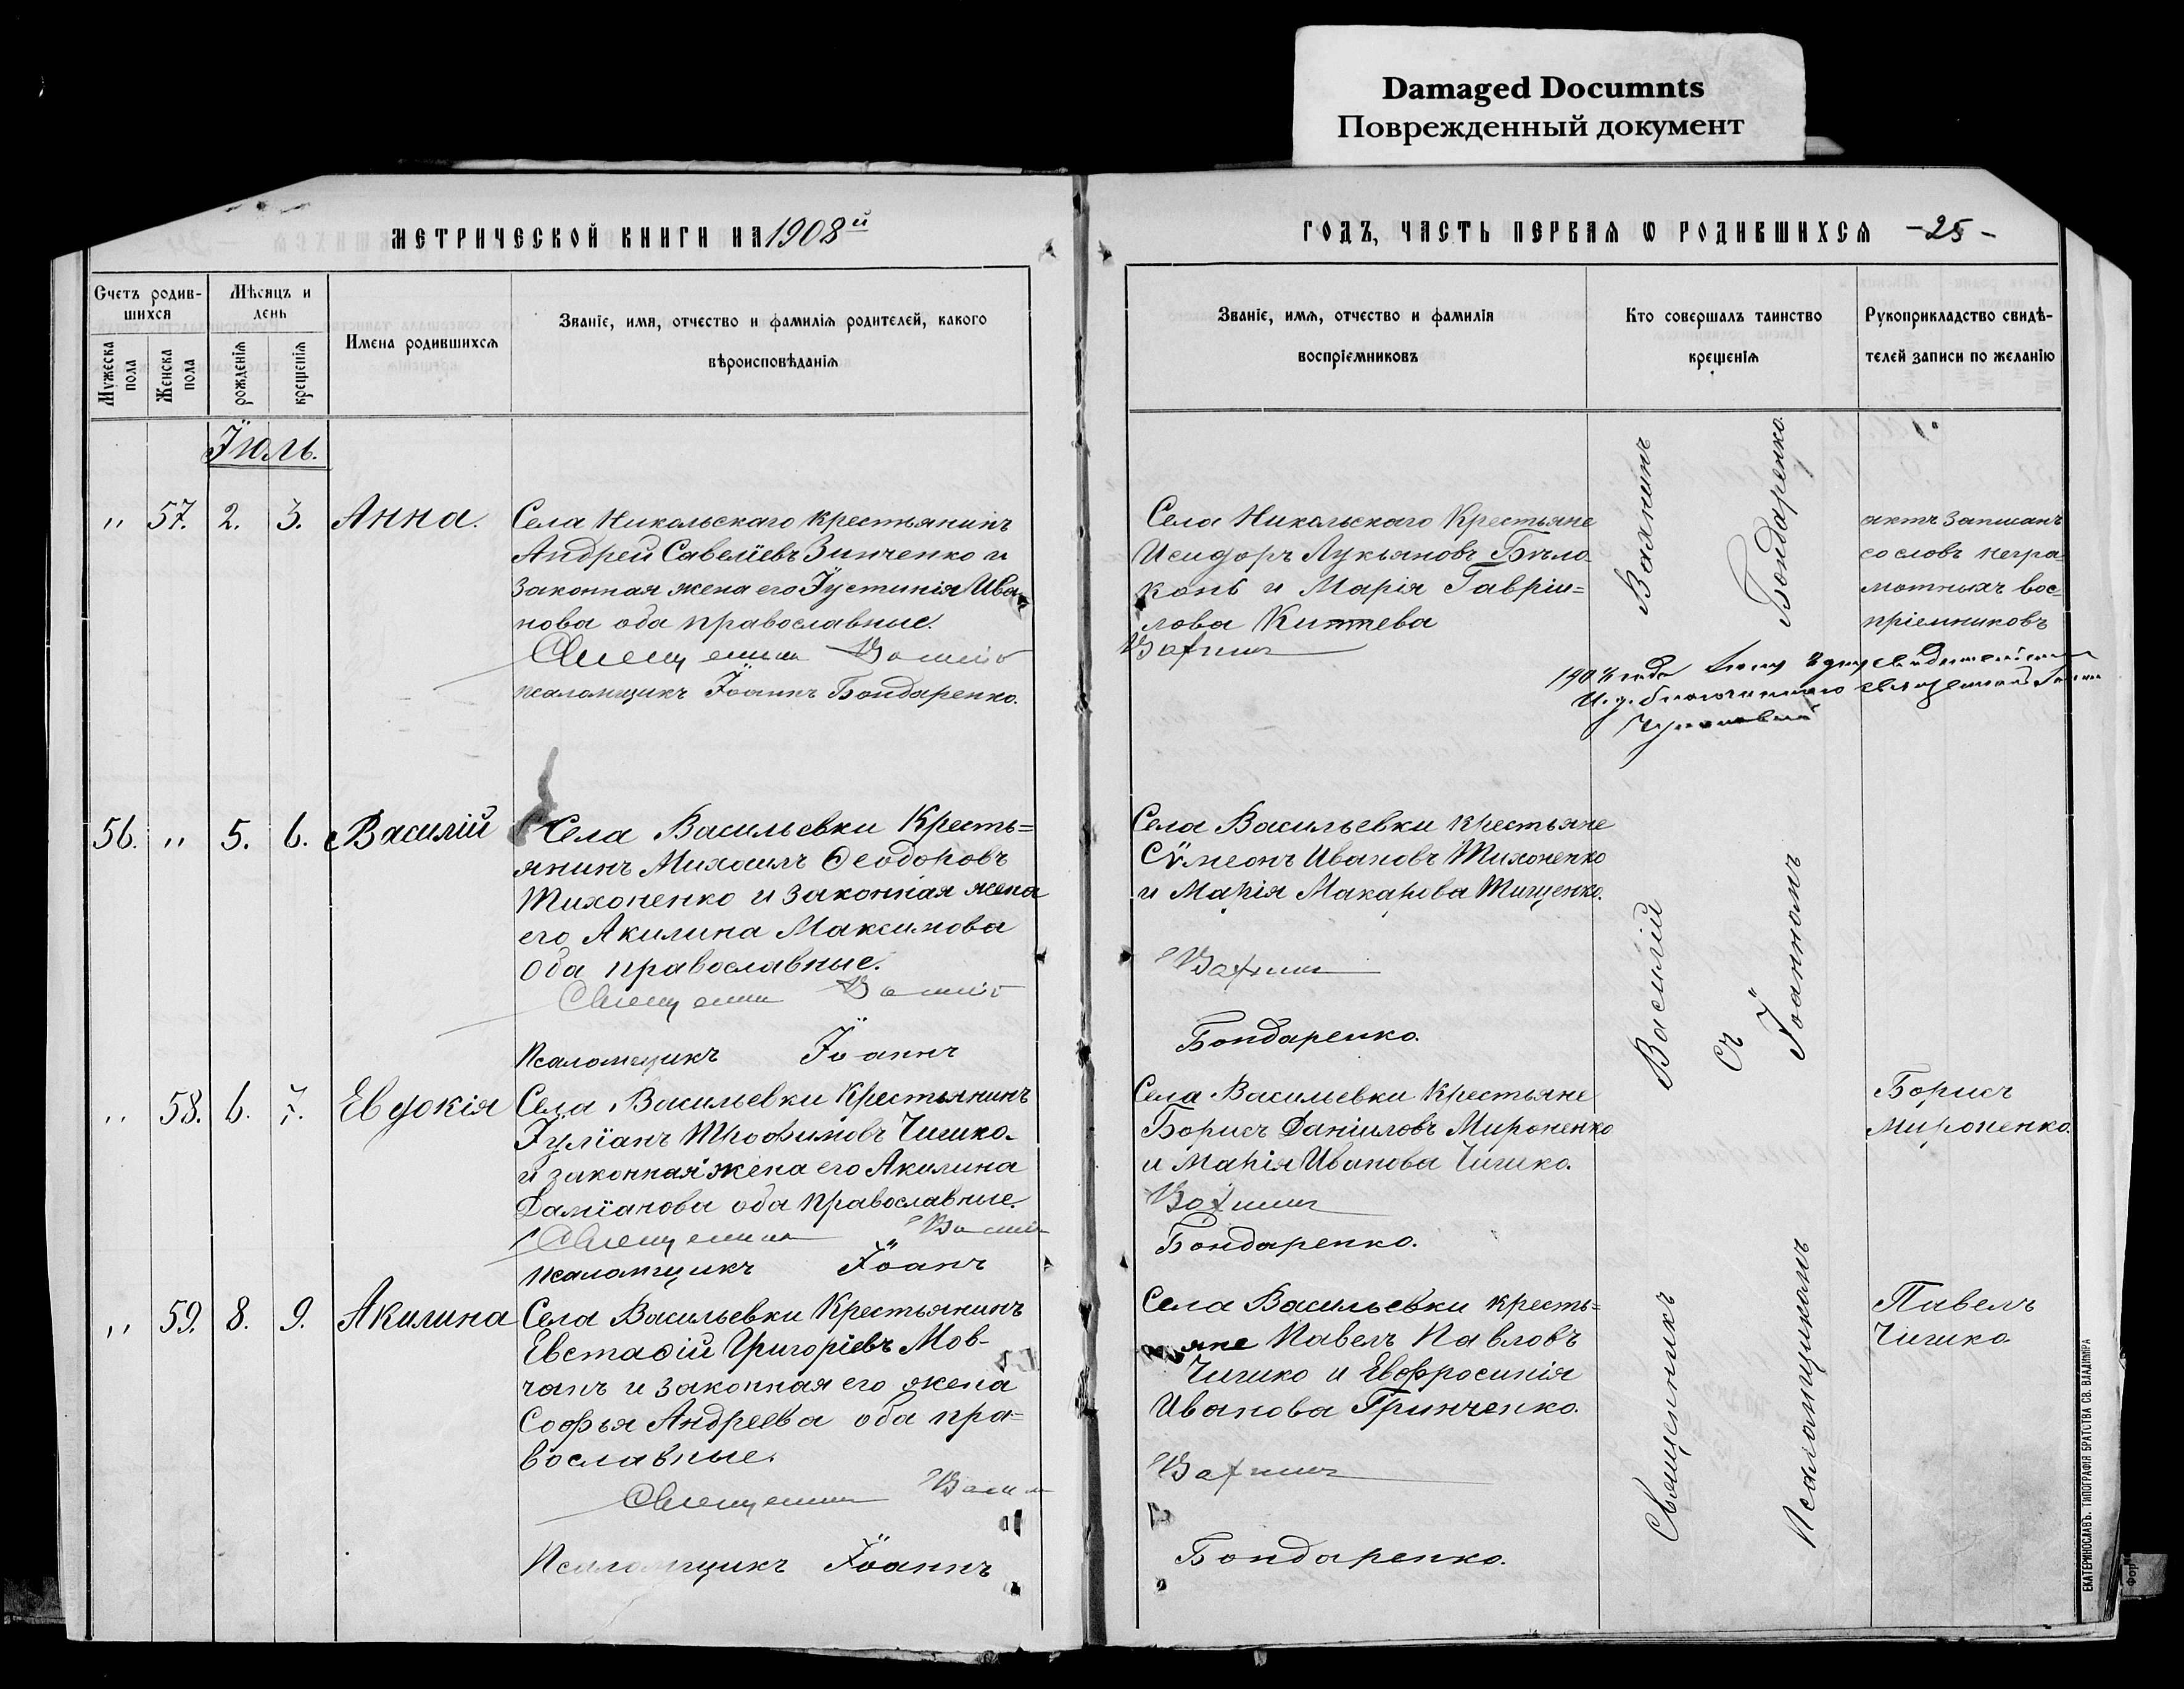 Damaged Documnts
Поврежденный документ
МЕТРИЧЕСКОЙ КНИГИ НА 1908й
Счетъ родив-
шихся
Мѣсяцъ и
день
Имена родившихся
Званіе, имя, отчество и фамилія родителей, какого
вѣроисповѣданія
Мужеска
пола
Женска
пола
рожденія
крещенія
Іюль.
" 57. 2. 3. Анна.
Села Никольскаго крестьянинъ
Андрей Савеліевъ Зинченко и
законная жена его Іустинія Ива
нова оба православные.
Священникъ
псаломщикъ Іоаннъ Бондаренко.
56. " 5. 6. Василій
Села Васильевки Кресть=
янинъ Михаилъ Ѳеодоровъ
Тихоненко и законная жена
его Акилина Максимова
Оба православные.
Священникъ
Псаломщикъ Іоаннъ
" 58. 6. 7. Евдокія
Села Васильевки Крестьянинъ
Іуліанъ Трофимовъ Чишко
и законная жена его Акилина
Даміанова оба православные.
Священникъ
псаломщикъ Іоаннъ
" 59. 8. 9. Акилина
Села Васильевки Крестьянинъ
Евстафій Григоріевъ Мов-
чанъ и законная его жена
Софья Андреева оба пра=
вославные.
Священникъ
Псаломщикъ Іоаннъ
ГОДЪ, ЧАСТЬ ПЕРВАЯ Ѡ РОДИВШИХСЯ -25-
Званіе, имя, отчество и фамилія
воспріемниковъ
Кто совершалъ таинство
крещенія
Рукоприкладство свидѣ-
телей записи по желанію
Села Никольскаго Крестьяне
Исидоръ Лукьяновъ Бѣло
конь и Марія Гавріи=
лова Китева
актъ записанъ
со словъ негра
мотныхъ вос-
пріемниковъ
Села Васильевки крестьяне
Сѵмеонъ Ивановъ Тихоненко
и Марія Макарова Тищенко.
Бондаренко.
Села Васильевки Крестьяне
Борисъ Даніиловъ Мироненко
и Марія Иванова Чишко.
Бондаренко.
Борисъ
Мироненко.
Села Васильевки кресть=
яне Павелъ Павловъ
Чишко и Евфросинія
Иванова Гринченко.
Бондаренко.
Павелъ
Чишко
Священникъ Василій
Псаломщикомъ Іоанномъ Бондаренко.
съ
ЕКАТЕРИНОСЛАВЪ. ТИПОГРАФІЯ БРАТСТВА СВ. ВЛАДИМІРА